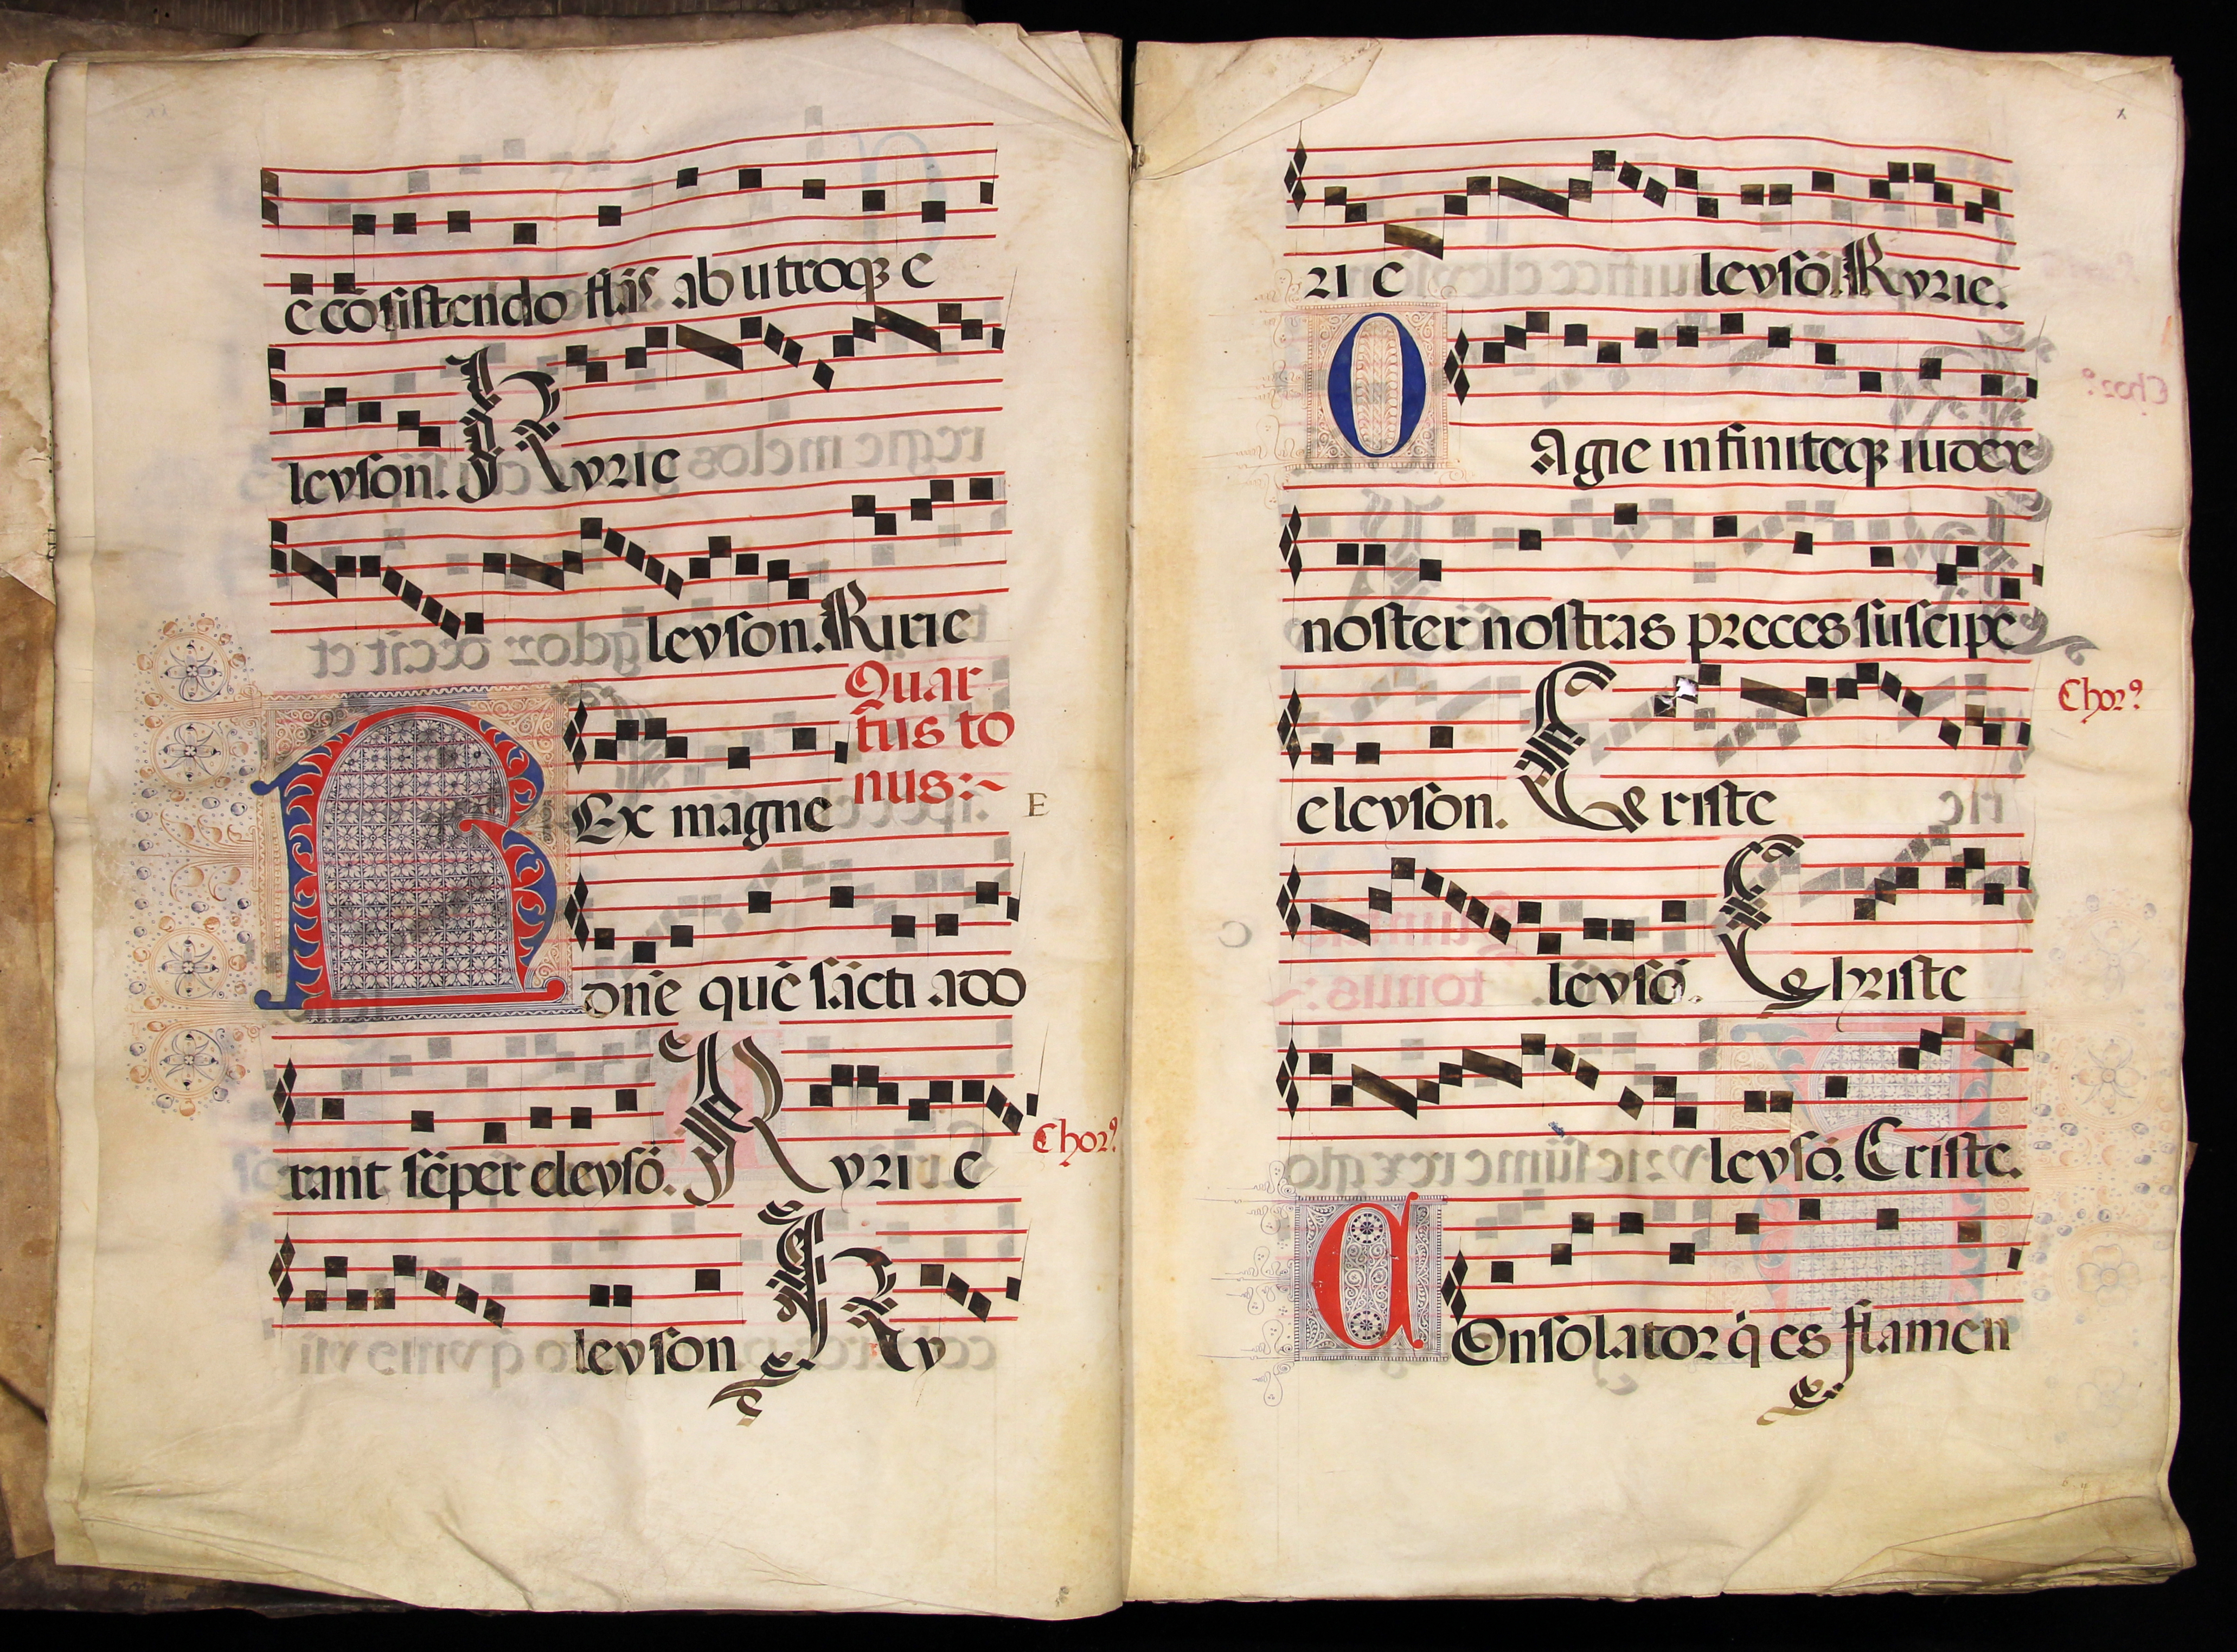 e cōsistendo flās ab utroqꝫ e
levson. Kyrie
levson. Kirie
Quar
tus to
nus:~
REx magne
E
dn̄e quē sācti ado
rant sēper elevsō. Kyri e
Chorꝰ
levson Ky
rie levsō. Kyrie.
O Agie infiniteqꝫ iudex
noster nostras preces suscipe
elevson. Ce riste
Chorꝰ
levsō. Christe
levsō. Criste.
COnsolator q̇ es flamen